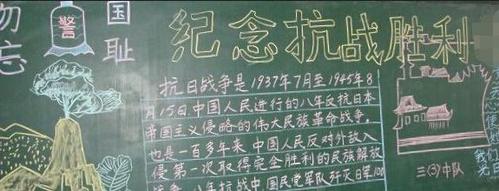 勿忘国耻
警
纪念抗战胜利
抗日战争是1937年7月至1945年8
月15日,中国人民进行的八年反抗日本
帝国主义侵略的伟大民族革命战争。
也是一百多年来中国人民反对外敌入
侵第一次取得完全胜利的民族解放
战争。八年抗战中国民党军队歼灭日军100
三(3)中队